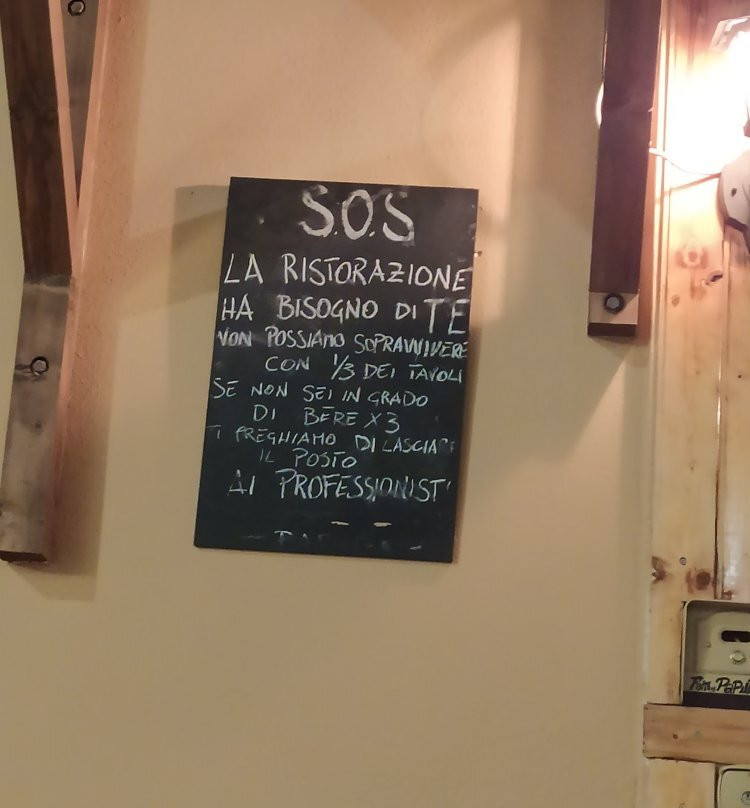 S.O.S
LA RISTORAZIONE
HA BISOGNO DI TE
NON POSSIAMO SOPRAVVIVERE
CON 1/3 DEI TAVOLI
SE NON SEI IN GRADO
DI BERE X3
TI PREGHIAMO DI LASCIARE
IL POSTO
AI PROFESSIONISTI